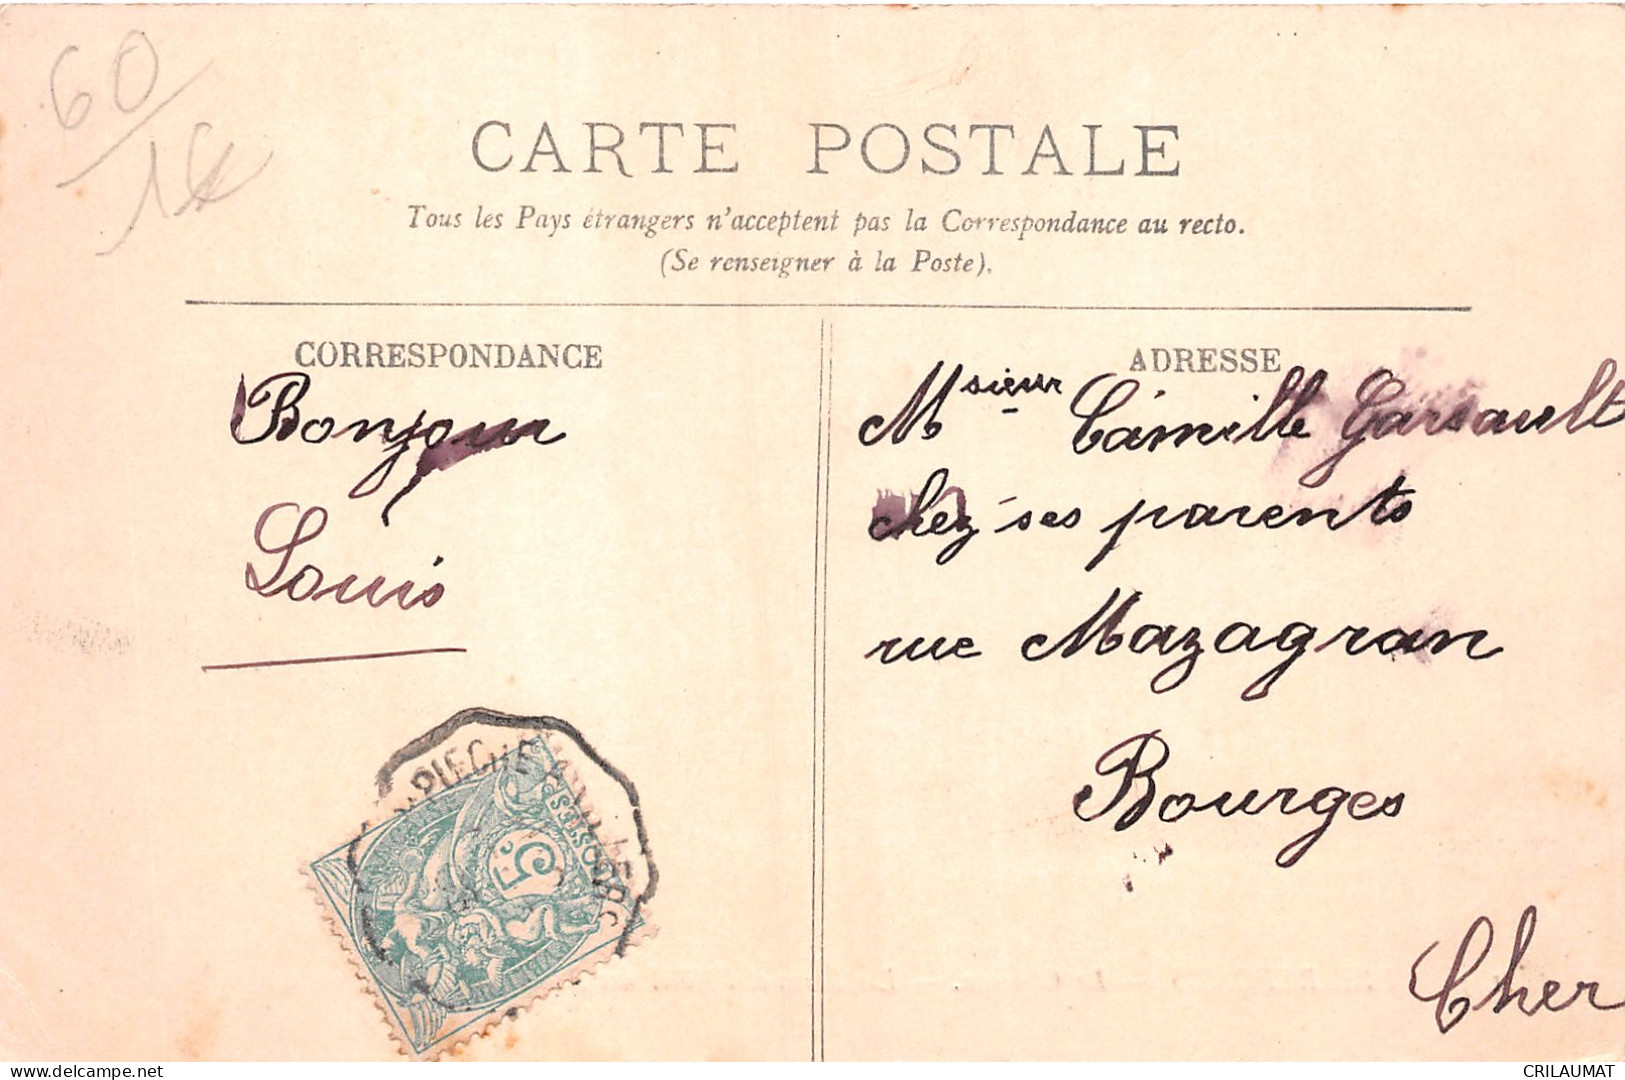 60
CARTE POSTALE
Tous les Pays étrangers n'acceptent pas la Correspondance au recto.
(Se renseigner à la Poste).
CORRESPONDANCE
Bonjour
Louis
ADRESSE
Msieur Camille Garsault
chez ses parents
rue Mazagran
Bourges
Cher
POSTES
5
delcampe.net
CRILAUMAT